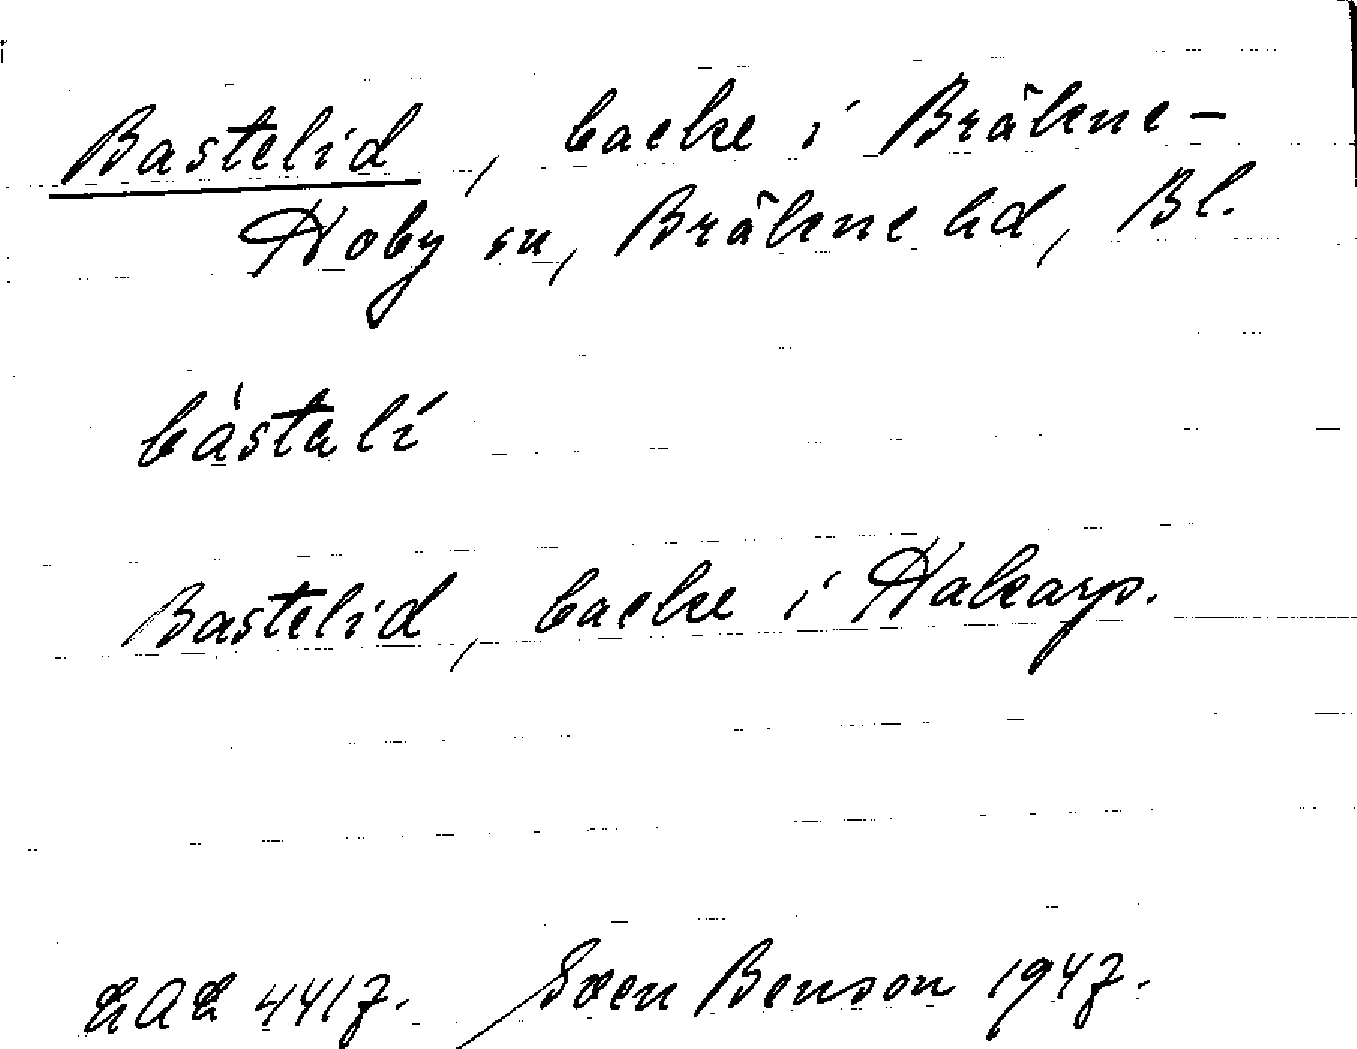 Bastelid, backe i Bräkne-
Hoby sn, Bräkne hd, Bl.
bástalí
Bastelid, backe i Hakarp.
LAL 4417. Sven Benson 1947.